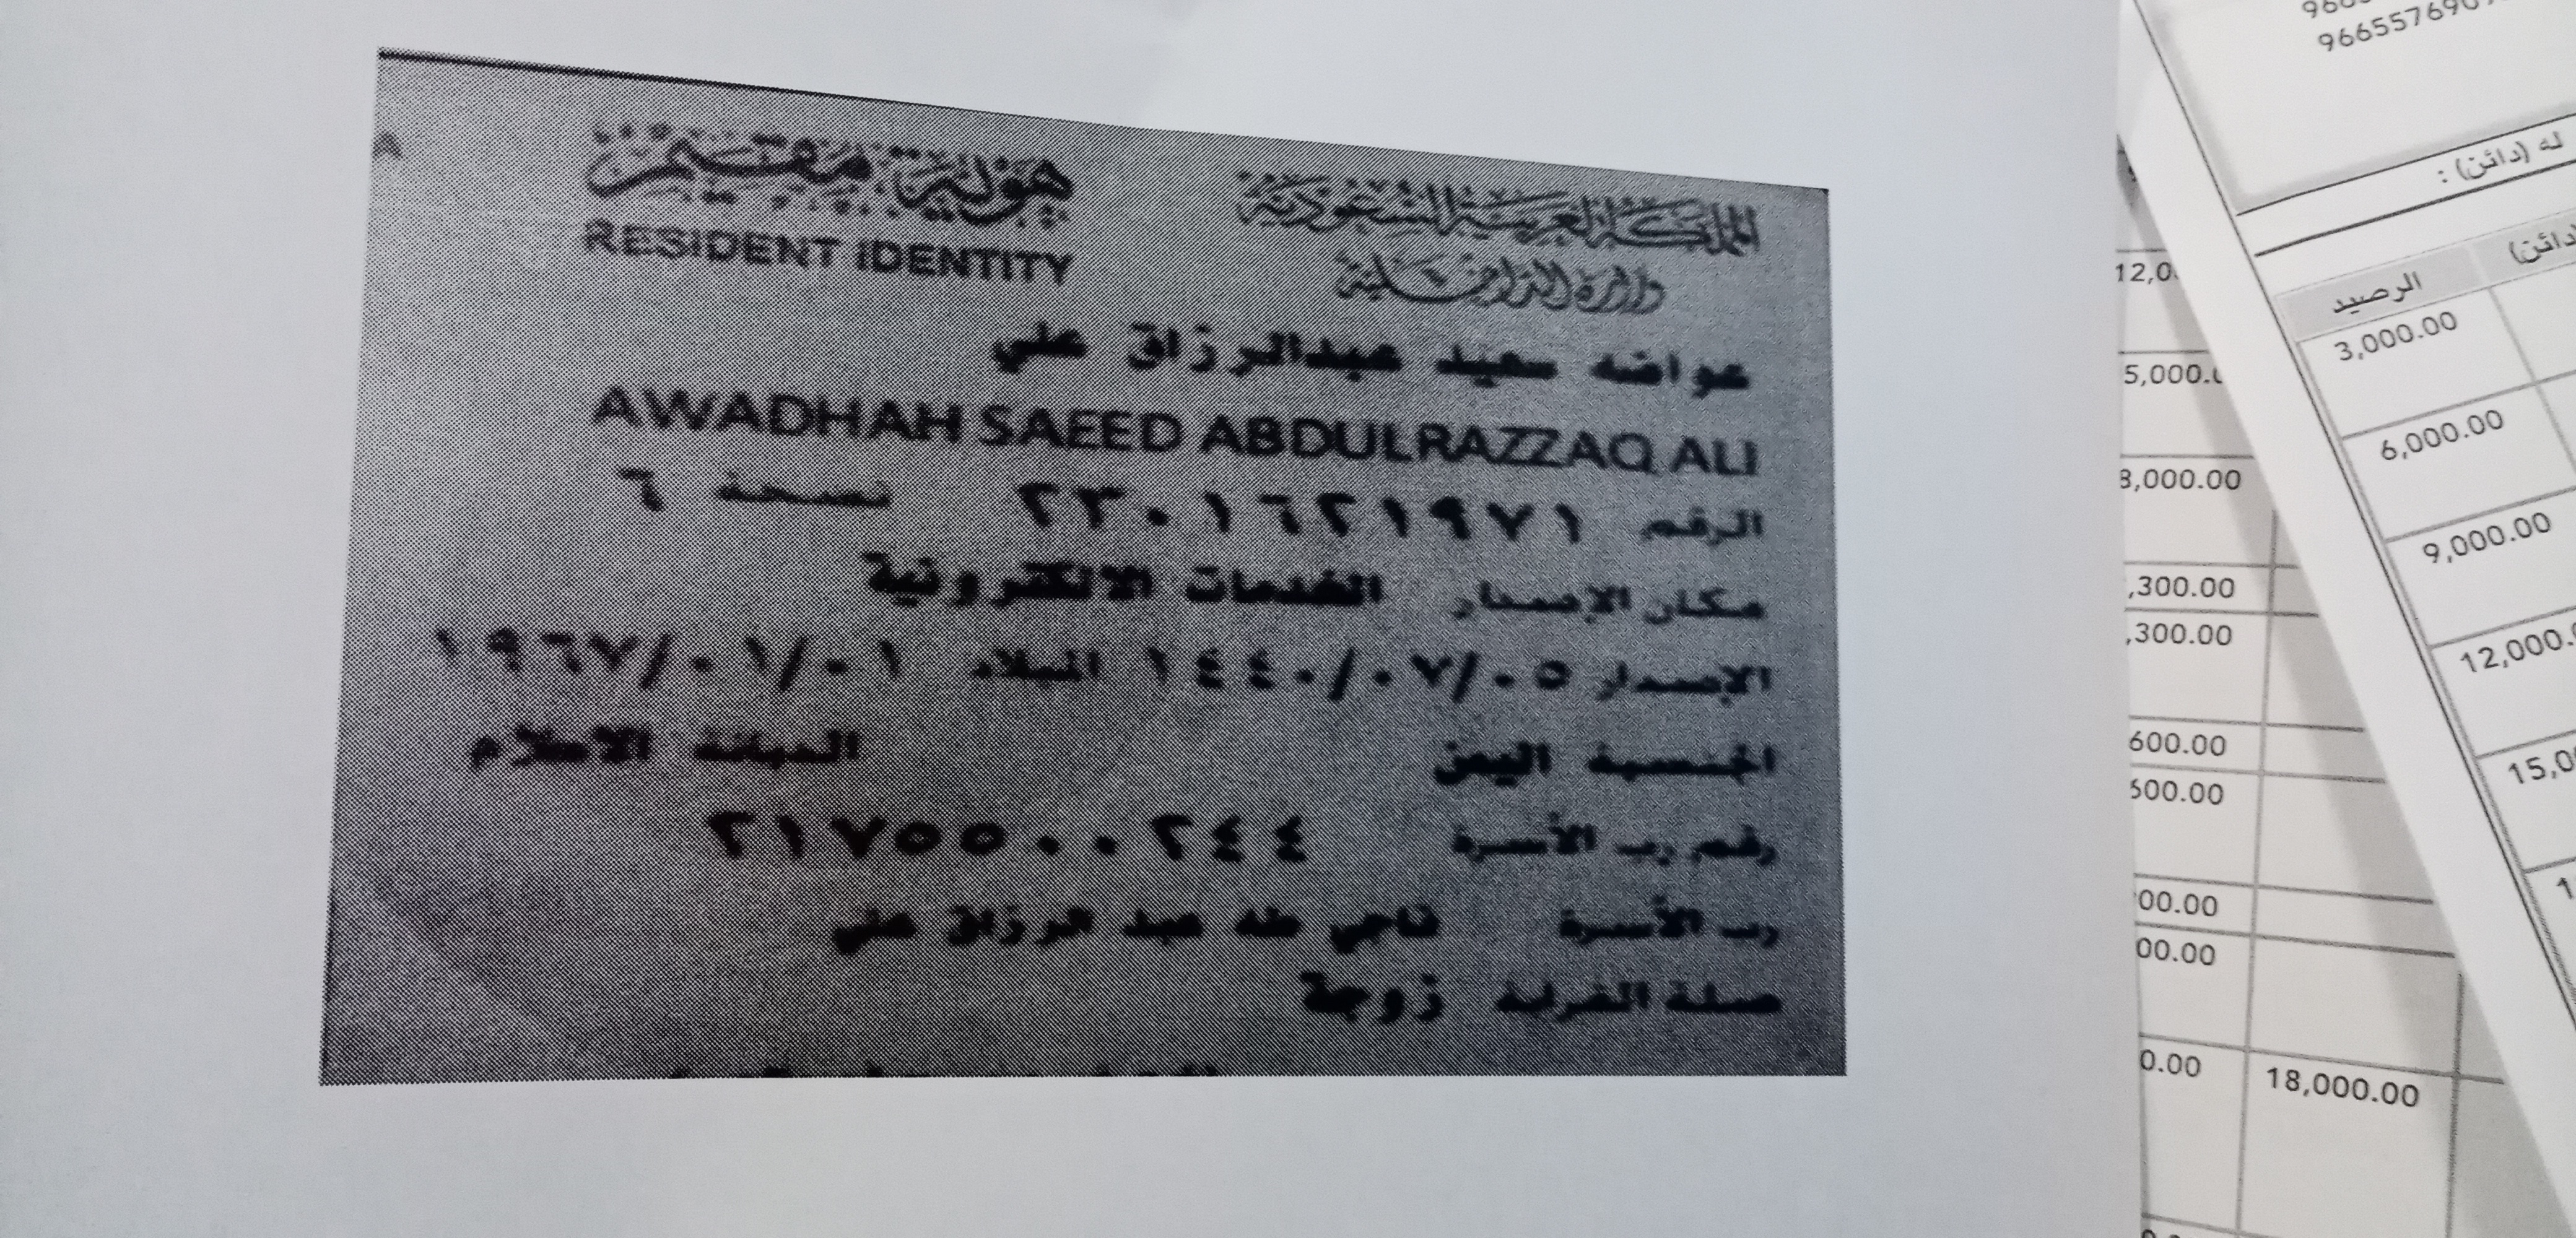 هوية مقيم
RESIDENT IDENTITY
المملكة العربية السعودية
وزارة الداخلية
عواضه سعيد عبدالرزاق علي
AWADHAH SAEED ABDULRAZZAQ ALI
الرقم ٢٣٠١٦٢١٩٧١ نسخة ٦
مكان الإصدار الخدمات الالكترونية
الإصدار ١٤٤٠/٠٧/٠٥ الميلاد ١٩٦٧/٠١/٠١
الجنسية اليمن الديانة الاسلام
رقم رب الأسرة ٢١٧٥٥٠٠٢٤٤
رب الأسرة ناجي طه عبد الرزاق علي
صلة القرابة زوجة
له (دائن) :
الرصيد
(دائن)
3,000.00
6,000.00
9,000.00
12,000.
8,000.00
,300.00
,300.00
600.00
00.00
00.00
0.00 18,000.00